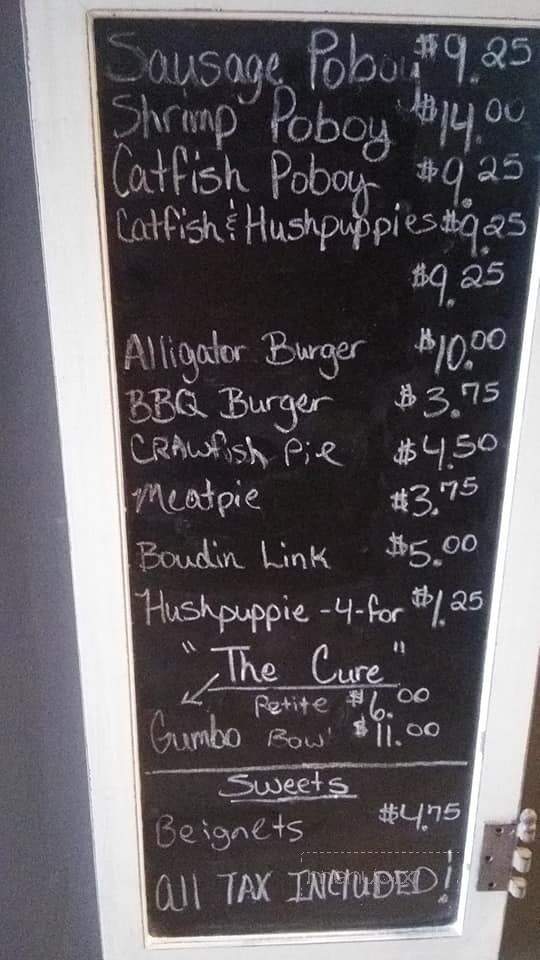 Sausage Poboy $9.25
Shrimp Poboy $14.00
Catfish Poboy $9.25
Catfish & Hushpuppies $9.25
$9.25
Alligator Burger $10.00
BBQ Burger $3.75
CRAWfish Pie $4.50
Meatpie $3.75
Boudin Link $5.00
Hushpuppie -4-for $1.25
"The Cure"
Petite $6.00
Gumbo Bowl $11.00
Sweets
Beignets $4.75
All TAX INCLUDED!